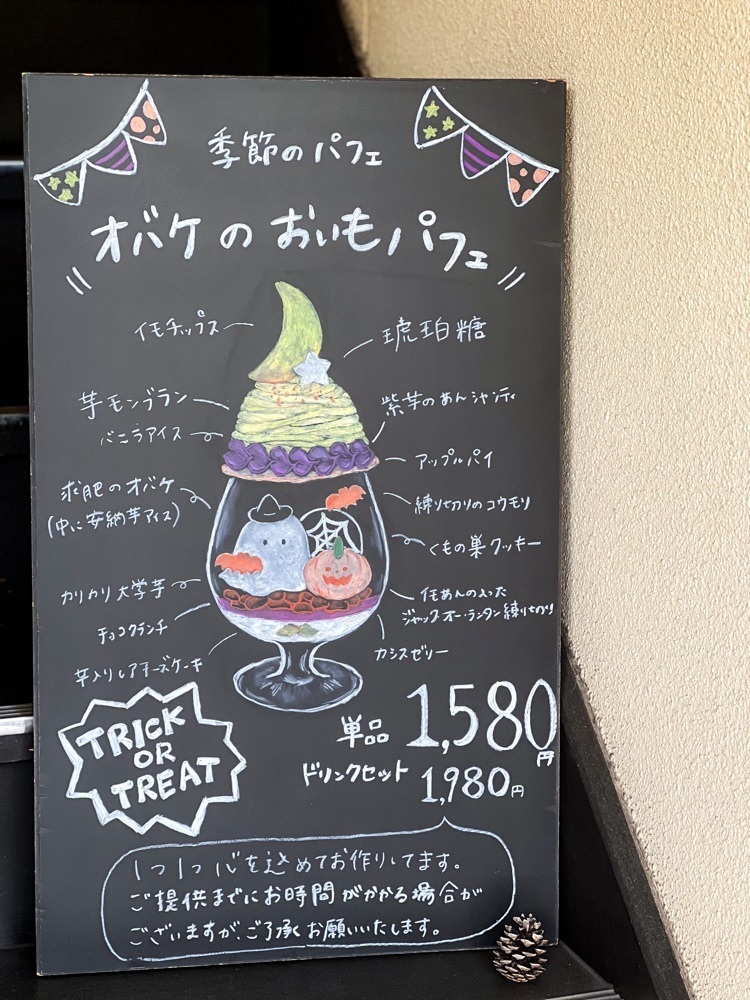 季節のパフェ
オバケのおいもパフェ
イモチップス
琥珀糖
芋モンブラン
紫芋のあんシャンティ
バニラアイス
アップルパイ
求肥のオバケ
(中に安納芋アイス)
練り切りのコウモリ
くもの巣クッキー
カリカリ大学芋
イモあんの入った
ジャック・オー・ランタン練り切り
チョコクランチ
カシスゼリー
芋入りレアチーズケーキ
TRICK
OR
TREAT
単品 1,580円
ドリンクセット 1,980円
1つ1つ心を込めてお作りしてます。
ご提供までにお時間がかかる場合が
ございますが、ご了承お願いいたします。